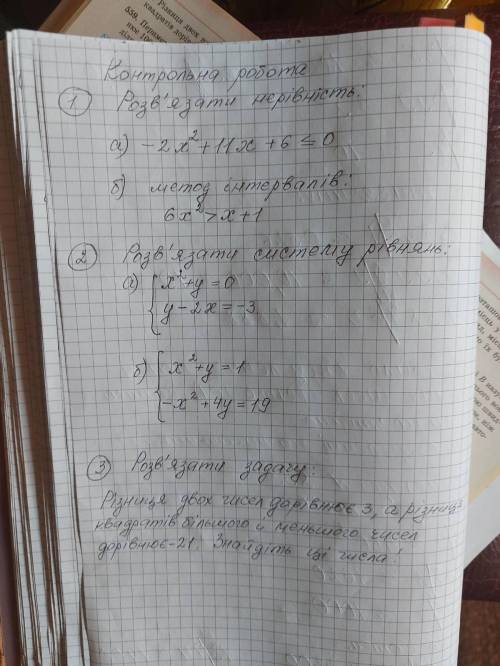 Різниця двох
559. Перим
квадратів дорі
Контрольна робота
1 Розв'язати нерівність:
а) -2x²+11x+6≤0
б) метод інтервалів:
6x²>x+1
2 Розв'язати систему рівнянь:
а) { x²+y=0
y-2x=-3
б) { x²+y=1
-x²+4y=19
3 Розв'язати задачу:
Різниця двох чисел дорівнює 3, а різниця
квадратів більшого й меньшого чисел
дорівнює-21. Знайдіть ці числа!